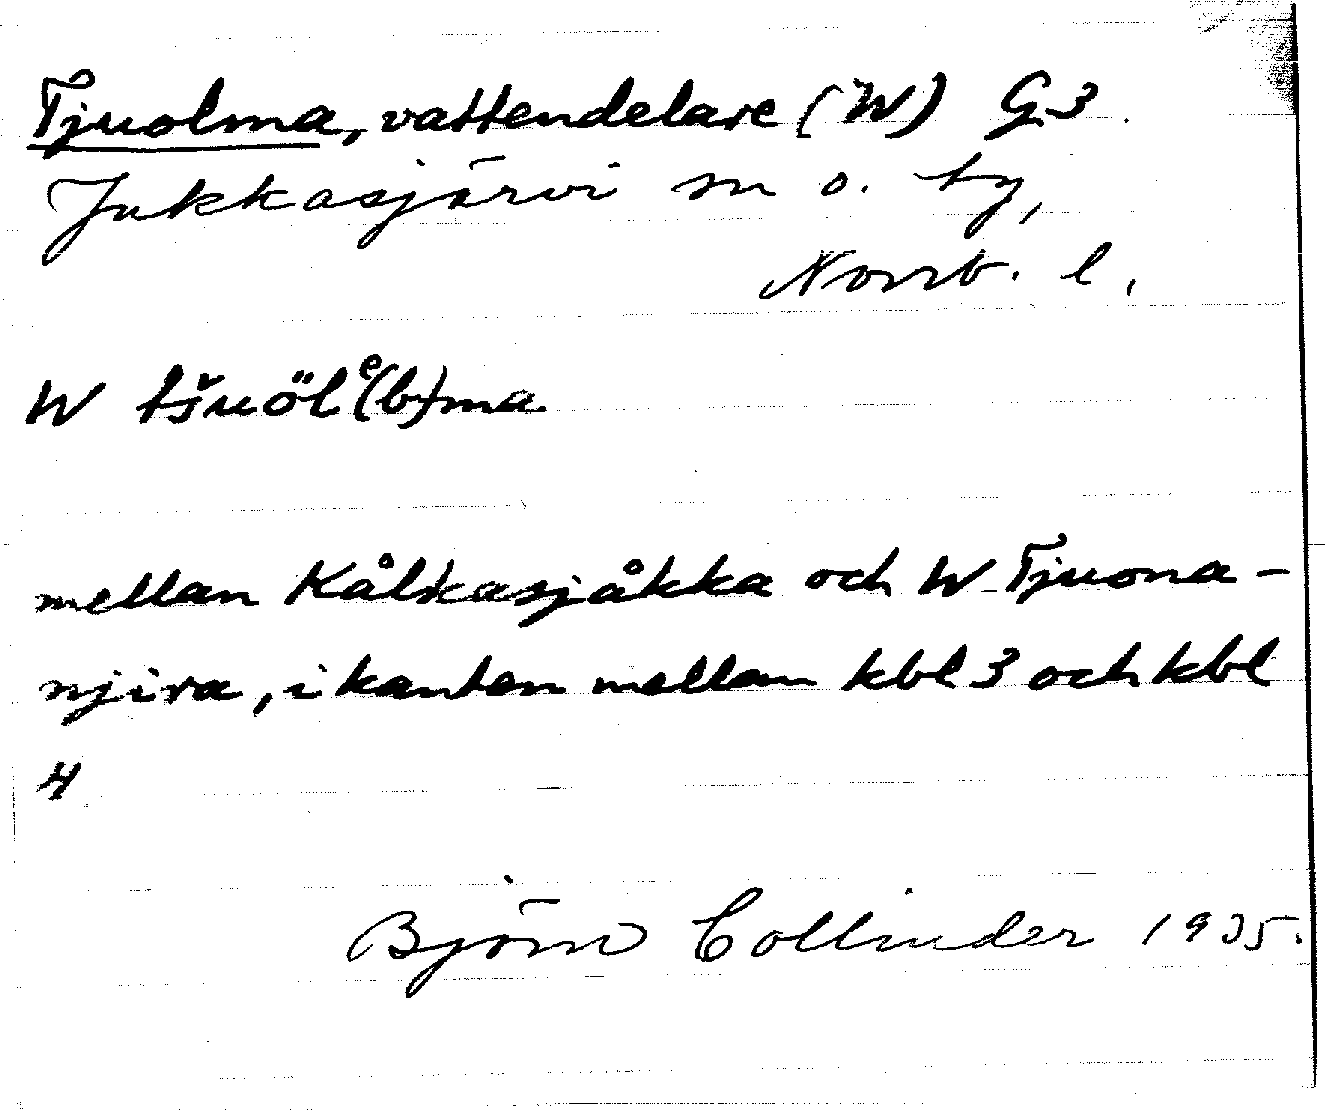 Tjuolma, vattendelare (W) G3
Jukkasjärvi sn o. ty,
Norrb. l.
W tšuölᵉ(b)ma
mellan Kålkasjåkka och W Tjuona-
njira, i kanten mellan kbl 3 och kbl
4
Björn Collinder 1935.